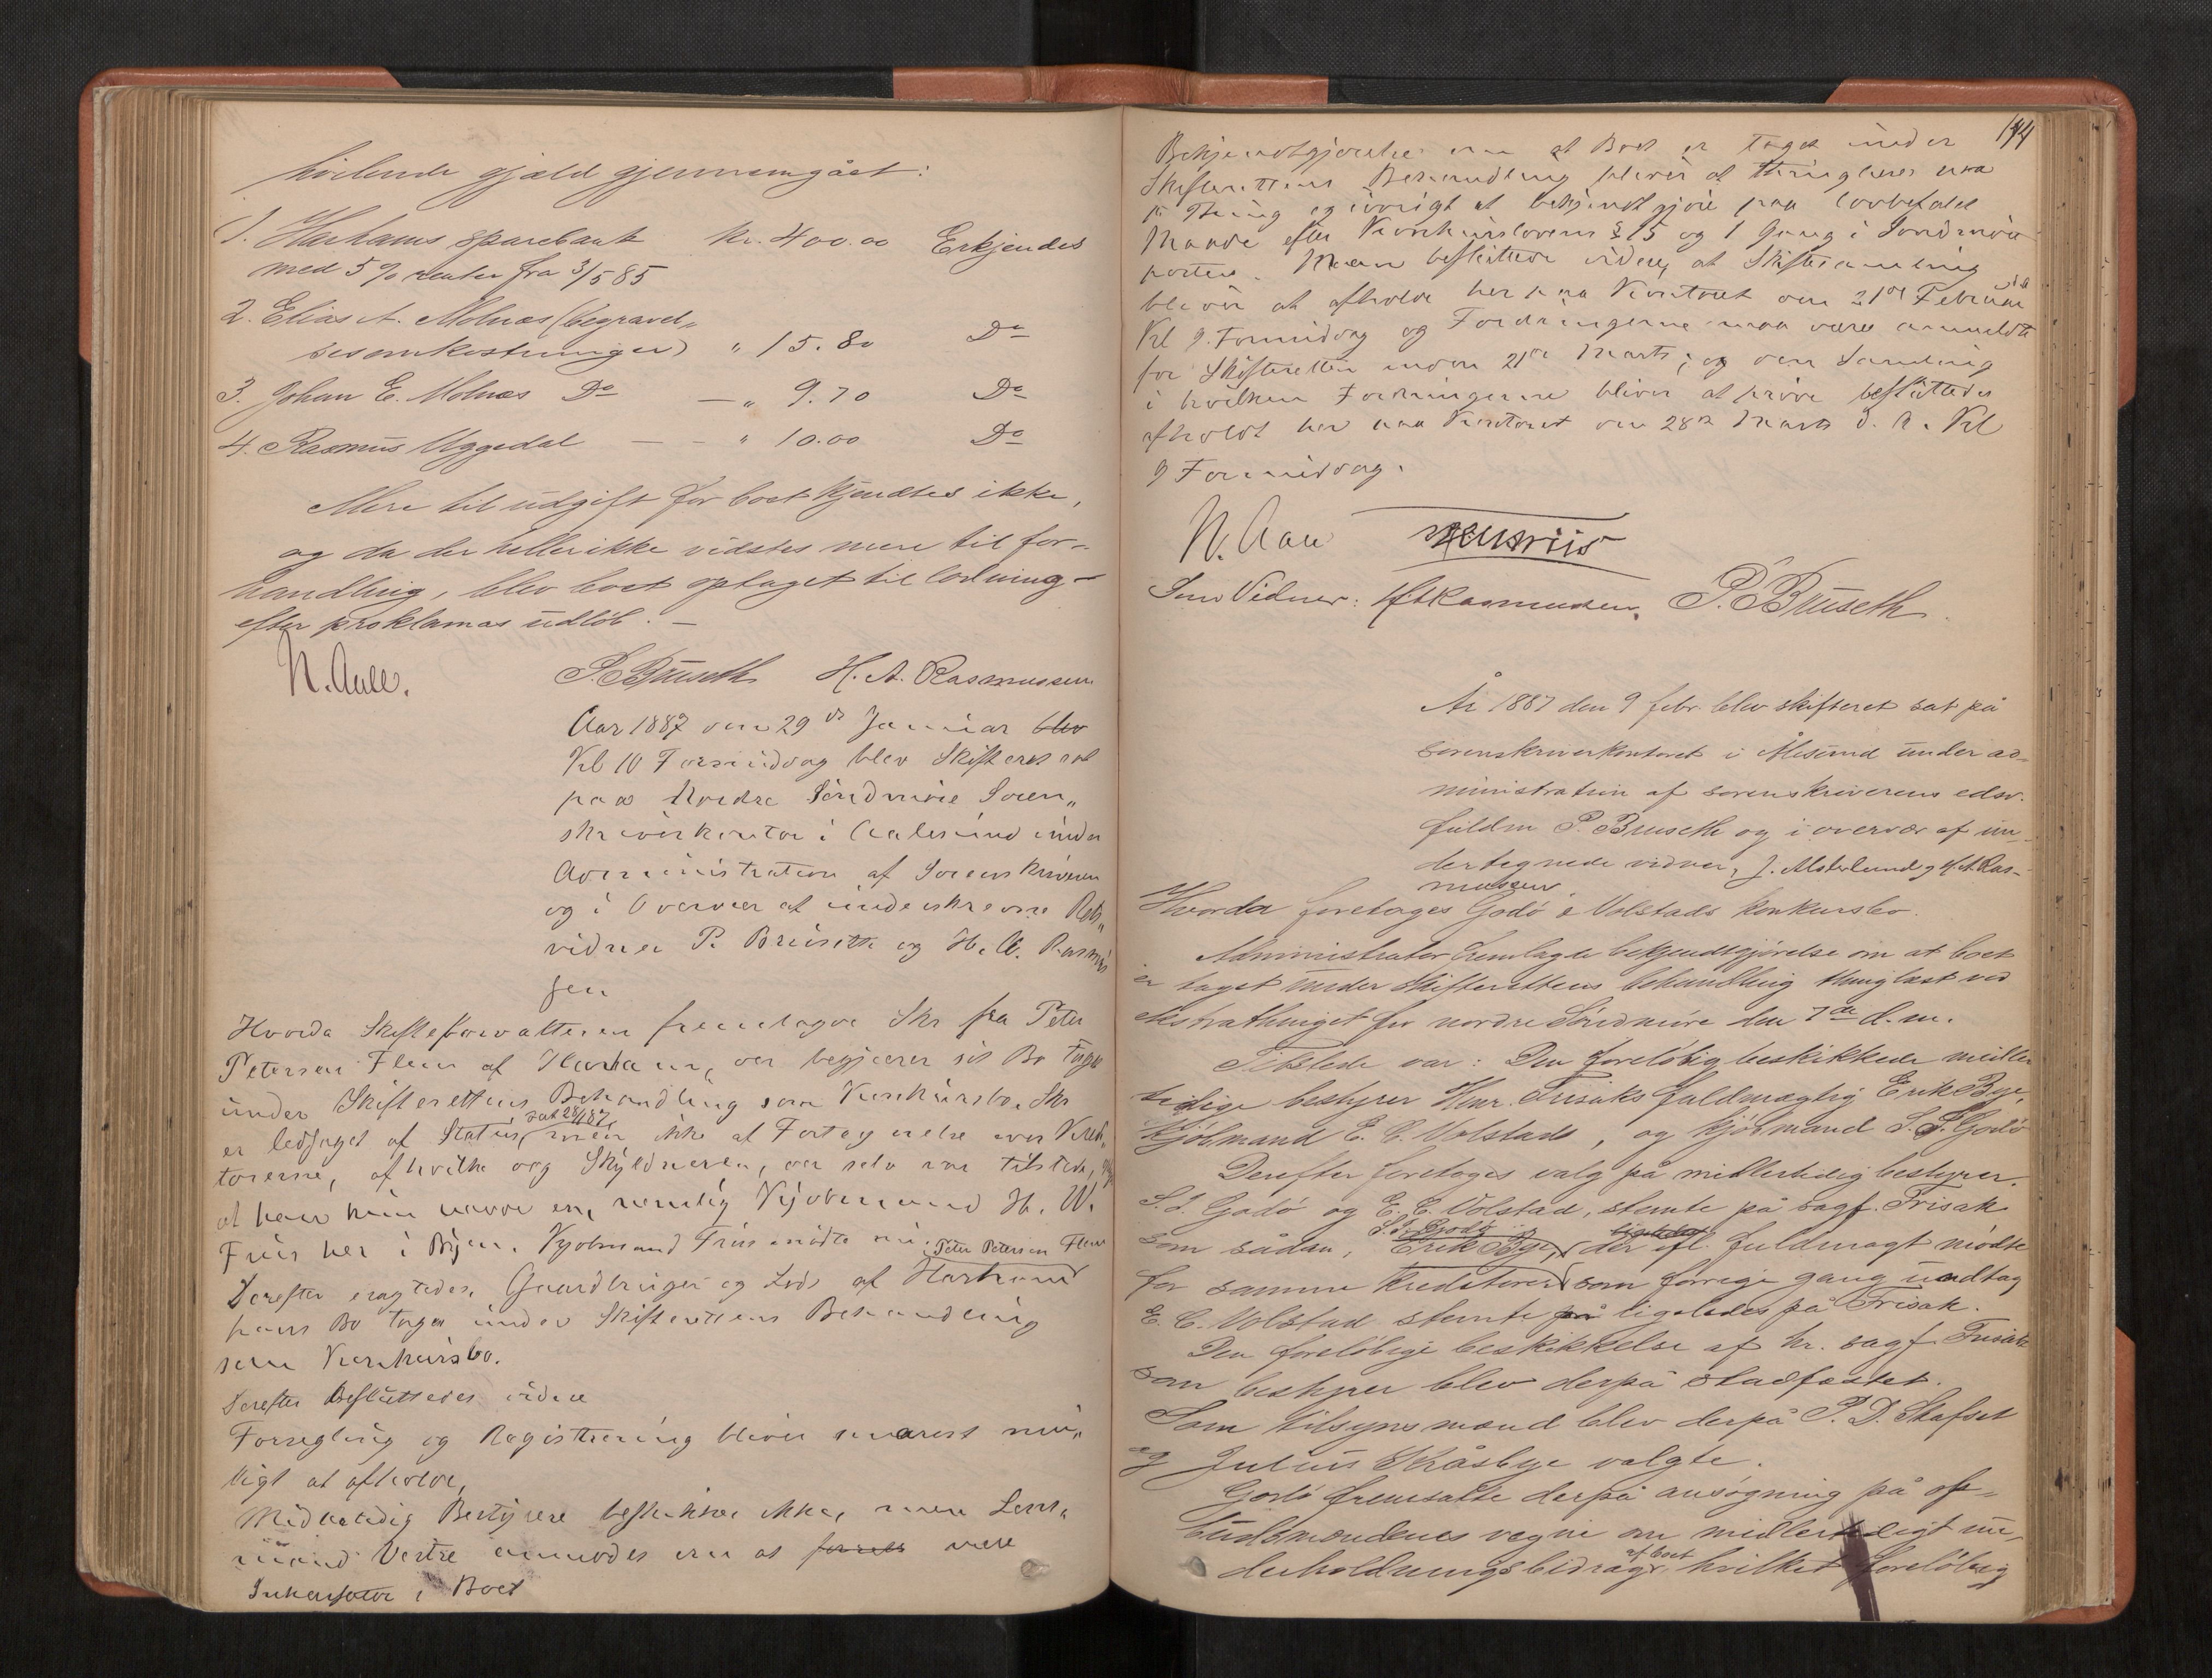 hvilende gjæld gjennemgået:
1. Harhams sparebank kr. 400.00 Erkjendes
med 5 % renter fra 3/5 85
2. Elias A. Molnæs (begravel„
sesomkostninger) " 15.80 Do
3. Johan E. Molnæs Do — " 9.70 Do
4. Rasmus Uggedal — - " 10.00 Do
Mere til udgift for boet kjendtes ikke,
og da der heller ikke vidstes mere til for-
handling, blev boet optaget til lodning
efter proklamas udløb. —
N. Aall. P. Bruseth H. A. Rasmussen
Aar 1887 den 29de Januar blev
Kl 10 Formiddag blev Skifteret sat
paa Nordre Søndmøre Soren„
skriverkontor i Aalesund under
Administration af Sorenskriveren
og i Overvær af underskrevne Rets„
vidner P. Bruseth og H. A. Rasmus
sen
Hvorda Skifteforvalteren fremlagde Skr fra Peter
Petersen Flem af Harham, der begjærer sit Bo taget
under Skifterettens Behandling som Konkursbo. Skr
sat 28/1 87
er ledsaget af Status, men ikke af Fortegnelse over Kredi„
torerne, af hvilke dog Skyldneren, der selv var tilstede,
at han kun havde en, nemlig Kjøbmand H. W.
Friis her i Byen. Kjøbmand Friis mødte nu. Peter Petersen Flem
Derefter eragtedes Gaardbruger og Lods af Harham
hans Bo taget under Skifterettens Behandling
som Konkursbo.
Derefter Besluttedes videre
Forsegling og Registrering bliver snarest mu„
ligt at afholde,
Midlertidig Bestyrere beskikkes ikke, men Lens„
mand Vestre anmodes om at være
Inkassator i Boet
Bekjendtgjørelse om at Boet er taget under 194
Skifterettens Behandling bliver at thinglæse paa
1ste Thing og øvrigt at bekjendtgjøre paa lovbefalet
Maade efter Konkurslovens § 15 og 1 Gang i Søndmørs
posten. Man besluttede videre, at Skiftesamling
bliver at afholde her paa Kontoret den 21de Februar
Kl 9 Formiddag og Fordringerne maa være anmeldte
for Skifteretten inden 21de Marts, og den Samling
i hvilken Fordringerne bliver at prøve besluttedes
afholdt her paa Kontoret den 28de Marts d. A. Kl
9 Formiddag.
N. Aall
Som Vidner: HARasmussen. P. Bruseth
År 1887 den 9 febr. blev skifteret sat på
sorenskriverkontoret i Ålesund under ad-
ministration af sorenskriverens edsv.
fuldm P. Bruseth og i overvær af un-
dertegnede vidner, J. Alsterlund og H. A Ras-
mussen
Hvorda foretages Godø & Volstads konkursbo.
Administrator fremlagde bekjendtgjørelse om at boet
er taget under skifterettens behandling thinglæst ved
ekstrathinget for nordre Søndmøre den 7de d. m.
Tilstede var: Den foreløbig beskikkede midler
tidige bestyrer Hmr. Frisaks fuldmægtig Erik Bye,
kjøbmand E. C. Volstads, og kjøbmand S. J. Godø
Derefter foretages valg på midlertidig bestyrer.
S. J. Godø og E. C. Volstad, stemte på sagf. Frisak
S. J. Godø ligeledes
som sådan, Erik Bye, der ifl. fuldmagt mødte
for samme kreditorer som forrige gang undtag
E. C. Volstad stemte på ligeledes på Frisak.
Den foreløbige beskikkelse af hr. sagf. Frisak
som bestyrer blev derpå stadfæstet.
Som tilsynsmænd blev derpå P. D. Skafset
og Julius Kråsbye valgte.
Godø fremsatte derpå ansøgning på op-
budsmændenes vegne om midlertidigt un-
af boet
derholdningsbidrag, hvilket foreløbig